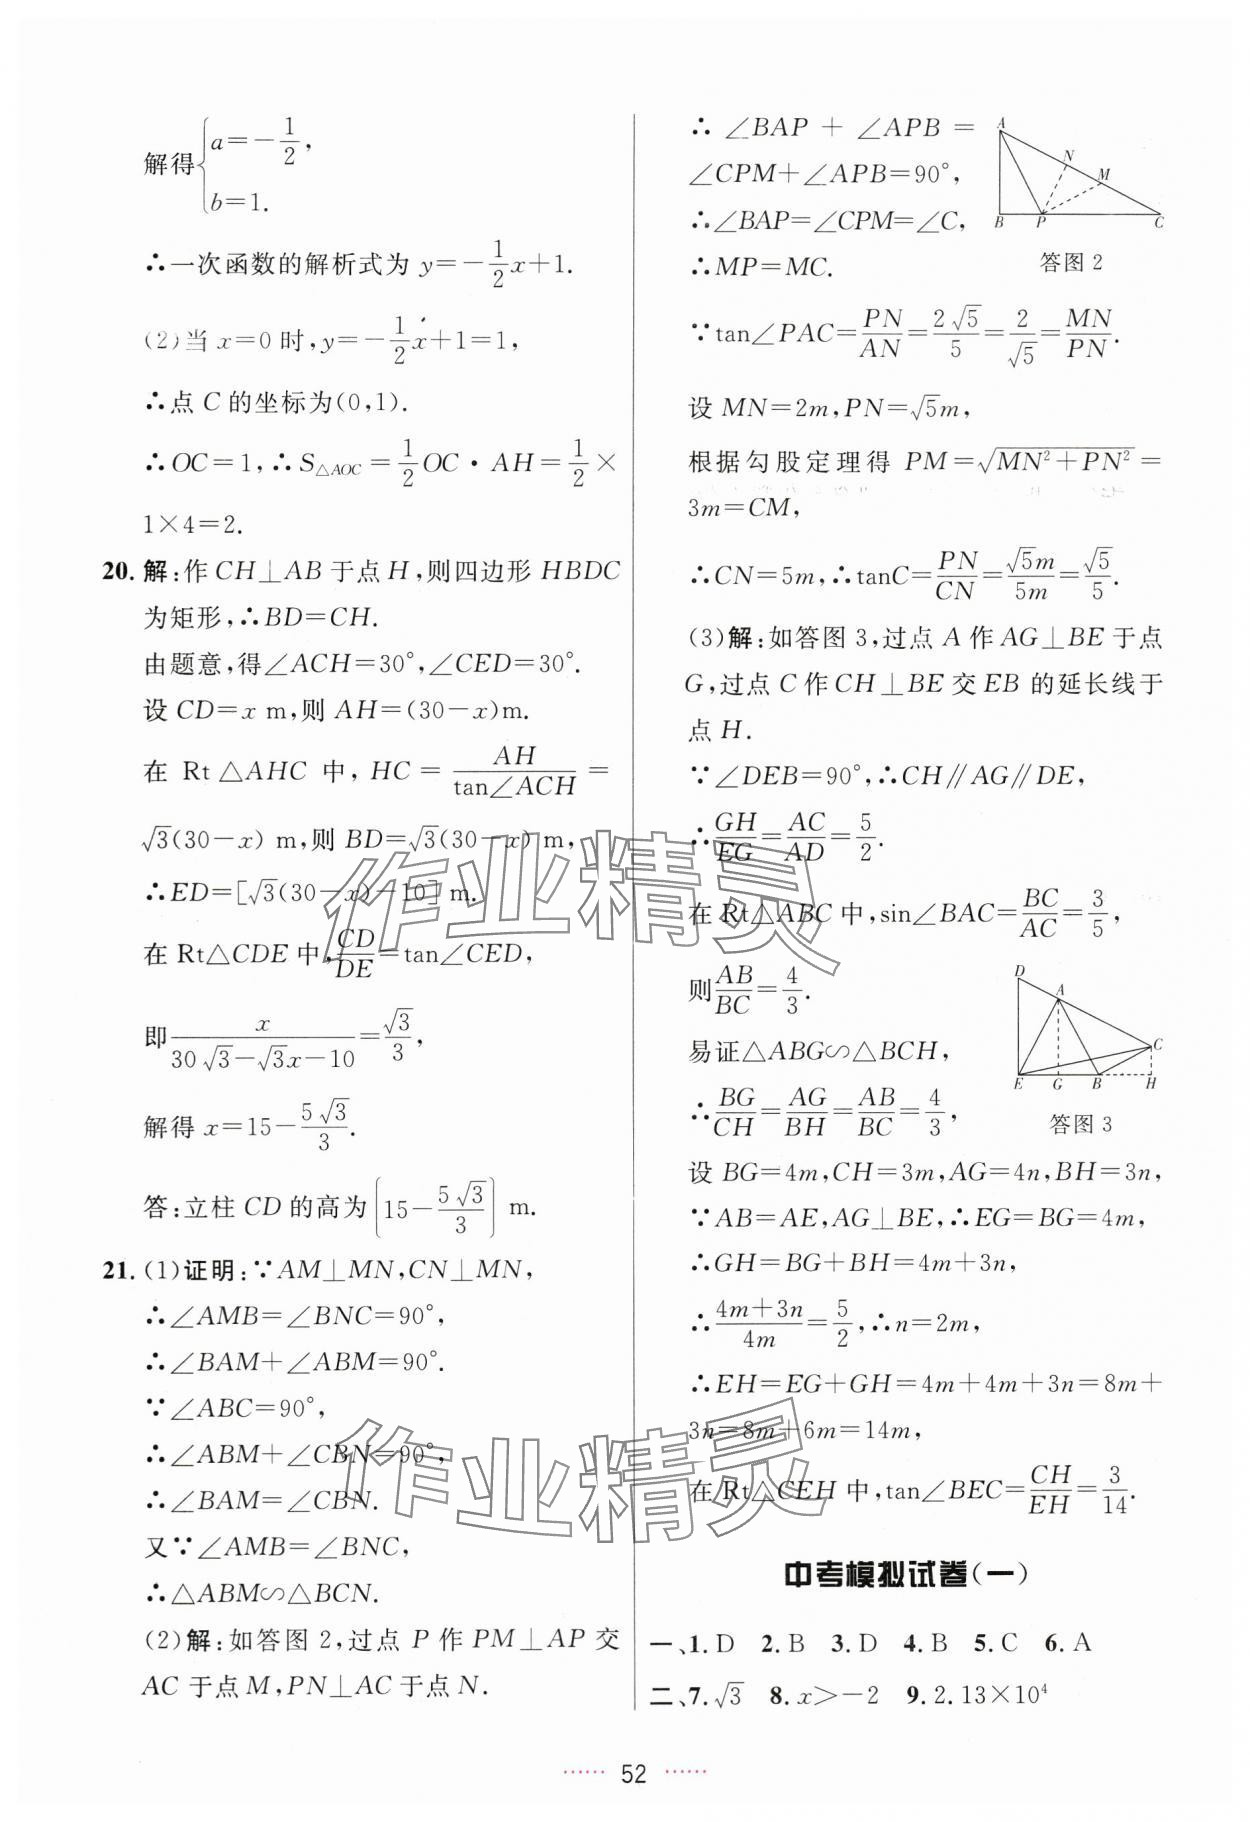 解得{a=-1/2,
b=1.
∴一次函数的解析式为 y=-1/2x+1.
(2)当 x=0 时,y=-1/2x+1=1,
∴点 C 的坐标为(0,1).
∴OC=1,∴S△AOC=1/2OC·AH=1/2×
1×4=2.
20. 解:作 CH⊥AB 于点 H,则四边形 HBDC
为矩形,∴BD=CH.
由题意,得∠ACH=30°,∠CED=30°.
设 CD=x m,则 AH=(30-x)m.
在 Rt△AHC 中,HC=AH/tan∠ACH=
√3(30-x) m,则 BD=√3(30-x) m,
∴ED=[√3(30-x)-10] m.
在 Rt△CDE 中,CD/DE=tan∠CED,
即x/(30√3-√3x-10)=√3/3,
解得 x=15-5√3/3.
答:立柱 CD 的高为(15-5√3/3) m.
21. (1)证明:∵AM⊥MN,CN⊥MN,
∴∠AMB=∠BNC=90°,
∴∠BAM+∠ABM=90°.
∵∠ABC=90°,
∴∠ABM+∠CBN=90°,
∴∠BAM=∠CBN.
又∵∠AMB=∠BNC,
∴△ABM∽△BCN.
(2)解:如答图 2,过点 P 作 PM⊥AP 交
AC 于点 M,PN⊥AC 于点 N.
∴∠BAP+∠APB=
∠CPM+∠APB=90°,
∴∠BAP=∠CPM=∠C,
∴MP=MC.
A
N
M
B P C
答图 2
∵tan∠PAC=PN/AN=2√5/5=2/√5=MN/PN.
设 MN=2m,PN=√5m,
根据勾股定理得 PM=√(MN²+PN²)=
3m=CM,
∴CN=5m,∴tanC=PN/CN=√5m/5m=√5/5.
(3)解:如答图 3,过点 A 作 AG⊥BE 于点
G,过点 C 作 CH⊥BE 交 EB 的延长线于
点 H.
∵∠DEB=90°,∴CH∥AG∥DE,
∴GH/EG=AC/AD=5/2.
在 Rt△ABC 中,sin∠BAC=BC/AC=3/5,
则AB/BC=4/3.
易证△ABG∽△BCH,
∴BG/CH=AG/BH=AB/BC=4/3,
D
A
C
E G B H
答图 3
设 BG=4m,CH=3m,AG=4n,BH=3n,
∵AB=AE,AG⊥BE,∴EG=BG=4m,
∴GH=BG+BH=4m+3n,
∴(4m+3n)/4m=5/2,∴n=2m,
∴EH=EG+GH=4m+4m+3n=8m+
3n=8m+6m=14m,
在 Rt△CEH 中,tan∠BEC=CH/EH=3/14.
中考模拟试卷(一)
一、1. D 2. B 3. D 4. B 5. C 6. A
二、7. √3 8. x>-2 9. 2.13×10⁴
······ 52 ······
作业精灵
作业精灵